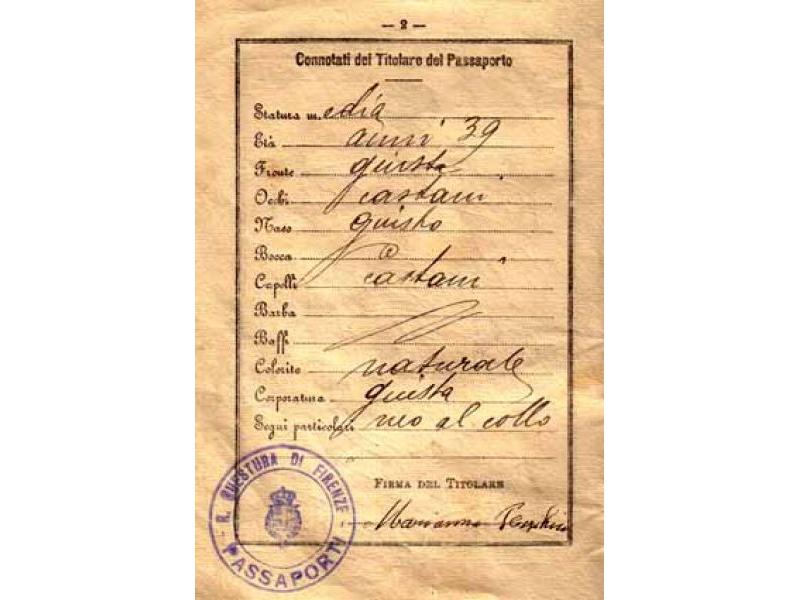 — 2 —
Connotati del Titolare del Passaporto
Statura media
Età anni 39
Fronte giusta
Occhi castani
Naso giusto
Bocca
Capelli castani
Barba
Baffi
Colorito naturale
Corporatura giusta
Segni particolari neo al collo
FIRMA DEL TITOLARE
Marianna
R. QUESTURA DI FIRENZE
PASSAPORTI